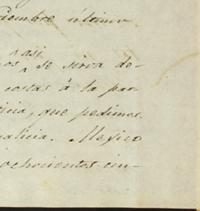 ciembre último.
asi
os se sirva de-
costas á la par
ticia, que pedimos
malicia. Mexico
ochocientos cin-